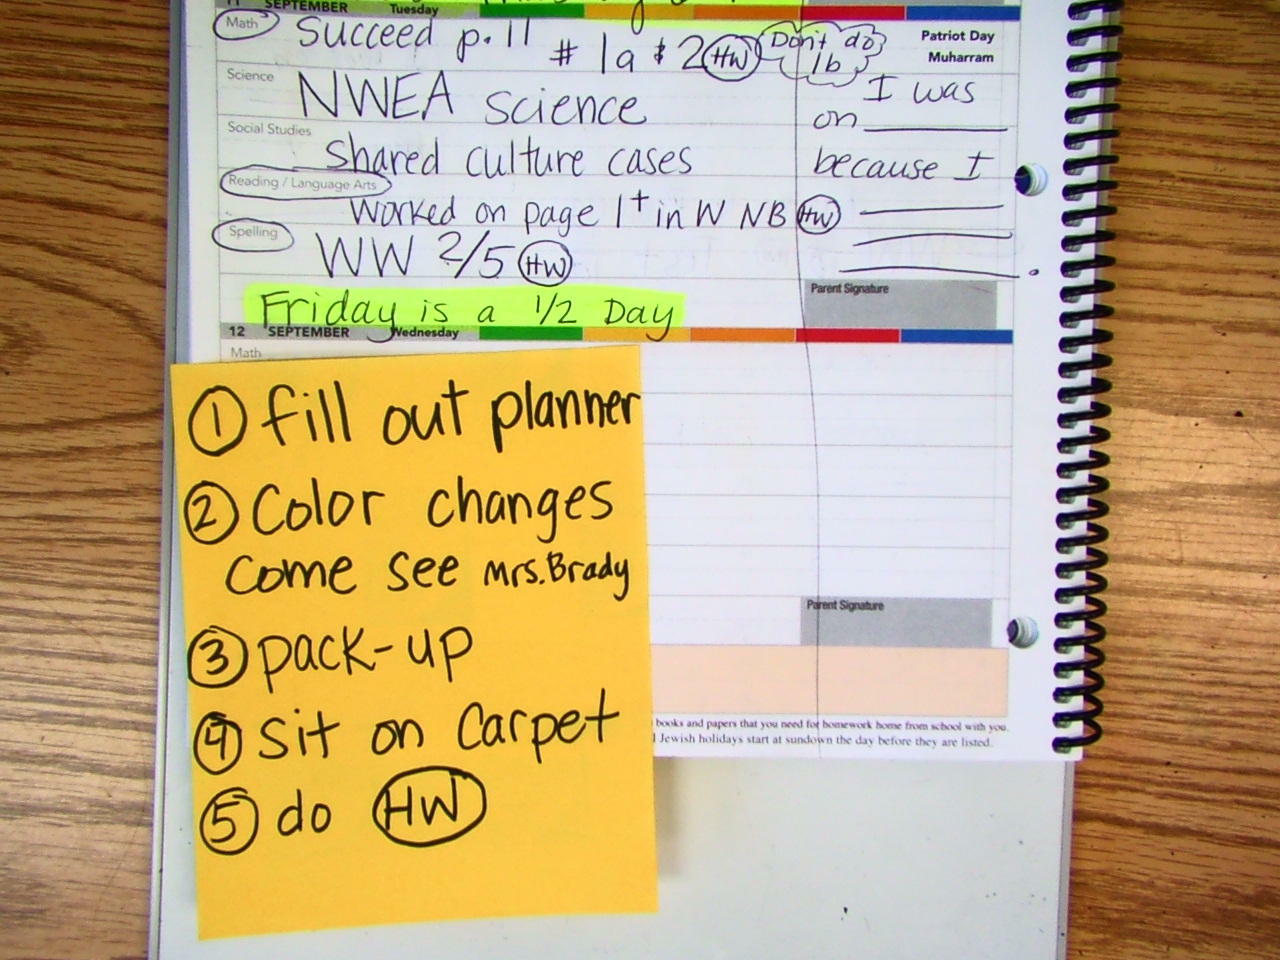 11 SEPTEMBER Tuesday
Math Succeed p. 11 # 1a & 2 HW Don't do 1b
Patriot Day
Muharram
Science NWEA science
I was
on
Social Studies
Shared culture cases
because I
Reading / Language Arts
Worked on page 1+ in W NB HW
Spelling WW 2/5 HW
Friday is a 1/2 Day
Parent Signature
12 SEPTEMBER Wednesday
Math
① fill out planner
② Color changes
come see Mrs. Brady
③ pack-up
④ sit on carpet
⑤ do HW
Parent Signature
books and papers that you need for homework home from school with you.
Jewish holidays start at sundown the day before they are listed.